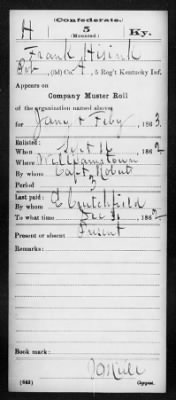 (Confederate.)
H 5 Ky.
(Mounted.)
Frank
Pvt, (3d) Co. F, 5 Reg't Kentucky Inf.
Appears on
Company Muster Roll
of the organization named above,
for Jany & Feby, 1863.
Enlisted:
When Sept 16, 1862
Where Williamstown
By whom Capt. Roberts
Period 3
Last paid:
By whom E Crutchfield
To what time Dec 31, 1862
Present or absent Present
Remarks:
Book mark:
(642) Copyist.